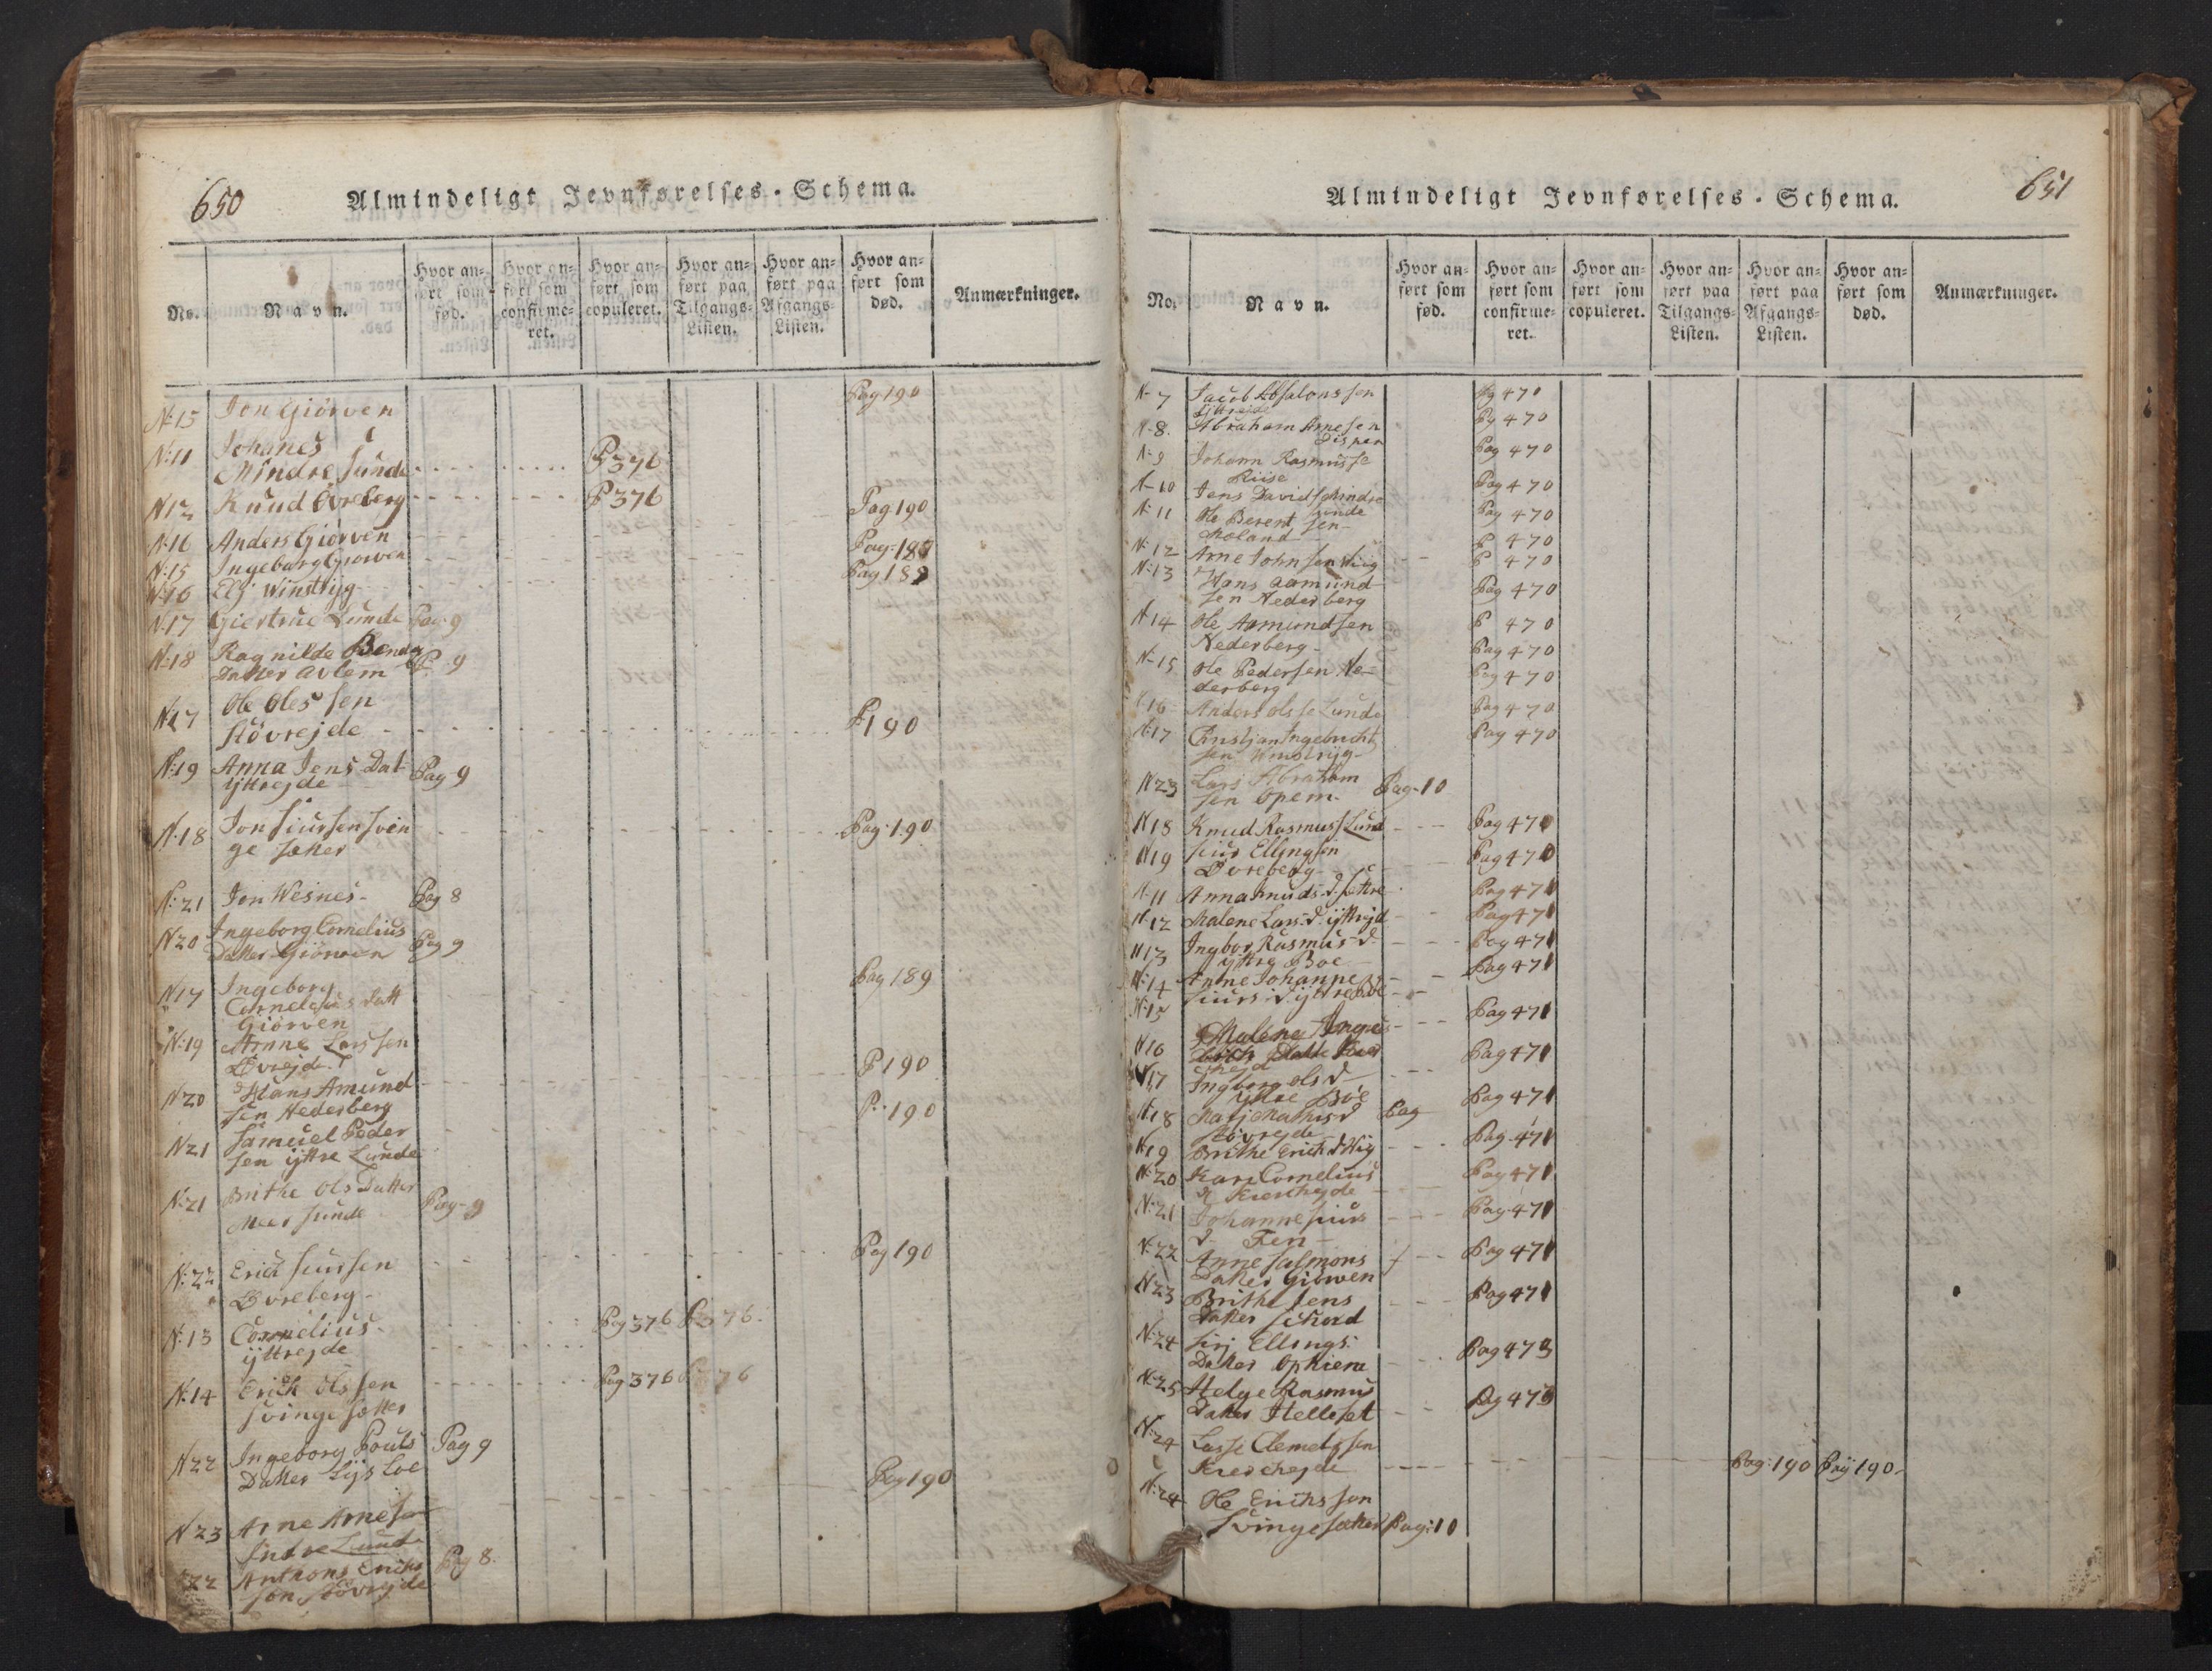 650
Almindeligt Jevnførelses-Schema.
No.
Navn.
Hvor anført som fød.
Hvor anført som confirmeret.
Hvor anført som copuleret.
Hvor anført paa Tilgangs-Listen.
Hvor anført paa Afgangs-Listen.
Hvor anført som død.
Anmærkninger.
N:15 Jon Giörven Pag 190
N:11 Johanes
Mindre Sunde P 376
N12 Knud Övreberg P 376
N:16 Anders Giörven Pag 190
N:15 Ingebarg Giörven Pag: 189
N:16 Elj Winstrijg Pag 189
N:17 Giertrue Lunde Pag. 9
N:18 Ragnilde Bends
Datter Avlem P. 9
N17 Ole Oles sen
Stövrejde P 190
N:19 Anna Jens Dat
ijttrejde Pag 9
N:18 Jon Siursen Svin
ge sætter Pag: 190
N:21 Jon Wesnes Pag 8
N20 Ingeborg Cornelius
Datter Giörven Pag 9
N17 Ingeborg
Cornelius Datt
Giörven Pag 189
N:19 Arne Lars sen
Övrejde P 190
N20 Hans Amund
sen Nederberg P. 190
N21 Samuel Peder
sen ijttre Lunde
N:21 Brithe Ols Datter
Meer Sunde Pag- 9
N:22 Erich Siursen
Övreberg Pag 190
N:13 Cornelius
ijttrejde Pag 376 P 376
N:14 Erich Ols sen
Svinge sætter Pag 376
N22 Ingeborg Pouls
Datter Lijs Loe Pag 9
N23 Arne Arnesen
Indre Lund Pag 190
Anthons Erichs
son Stövrejde Pag 8.
651
Almindeligt Jevnførelses-Schema.
No.
Navn.
Hvor anført som fød.
Hvor anført som confirmeret.
Hvor anført som copuleret.
Hvor anført paa Tilgangs-Listen.
Hvor anført paa Afgangs-Listen.
Hvor anført som død.
Anmærkninger.
N 7 Jacob Absalons sen
ijttrejde Pag 470
N 8. Abraham Arnesen
Disper Pag 470
N 9 Johann Rasmusse
Riise Pag 470
N 10 Jens Davids Mindre
Sunde Pag 470
N: 11 Ole Berent sen
Moland Pag 470
N: 12 Arne Johnsen Wiig P 470
N: 13 Hans Aamund
sen Nederberg Pag 470
N 14 Ole Aamundsen
Nederberg P 470
N 15 Ole Pedersen Ne-
derberg Pag 470
16 Anders Olsse Lunde Pag 470
N:17 Christjan Ingebricht
sen Winstrijg Pag 470
N23 Lars Abraham
sen Opem Pag. 10
N18 Knud Rasmuss Lund Pag 470
N19 Siur Ellingsen
Övreberg Pag 470
N:11 Anna Knuds-d. Pag 471
N12 Malene Lars-d. ijttrejd Pag 471
N13 Ingbor Rasmus-d.
ijttre Boe Pag 471
N:14 Anne Johanne
Siurs-d. ijttre Böe Pag 471
N:15
N16 Malene Inge
Datt Pag 471
N17 Ingborg Ols d
ijttre Böe Pag 471
N18 Marj Mathis d
Stövrejde Pag Pag 471
N19 Brithe Erich d Wig Pag 471
N:20 Kari Cornelius
d Pag 471
N:21 Johanne Siurs
d. Fen Pag 471
N:22 Anne Salmons
Datter Giörven Pag 471
N23 Brithe Jens
Datter Pag 471
N:24 Sirj Ellings:
Datter Opkiem Pag 473
N:25 Helge Rasmus
Datter Helleset Pag 473
N:24 Lasse Clemetsen
Pag: 190 Pag 190
N:24 Ole Erichs son
Svinge sætter Pag: 10